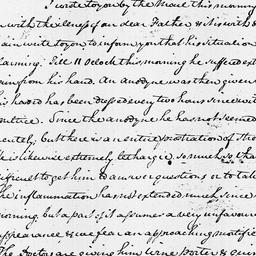 I wrote to you by the Mail this morning
with the illness of our dear Father & it is with
ain write to you to inform you that his situation
larming. Till 11 Oclock this morning he suffered ext
pain from his hand. An anodyne was then given
his hand has been dressed every two hours since with
Since the anodyne he has not seemed
ently, but there is an entire prostration of the
He is likewise extremely lethargic, so much so, tha
difficult to get him to answer questions or to take
The inflammation has not extended much since
morning but a part of it assumes a very unfavour
appearance & we fear an approaching mortific
The Doctors are giving him wine Porter &